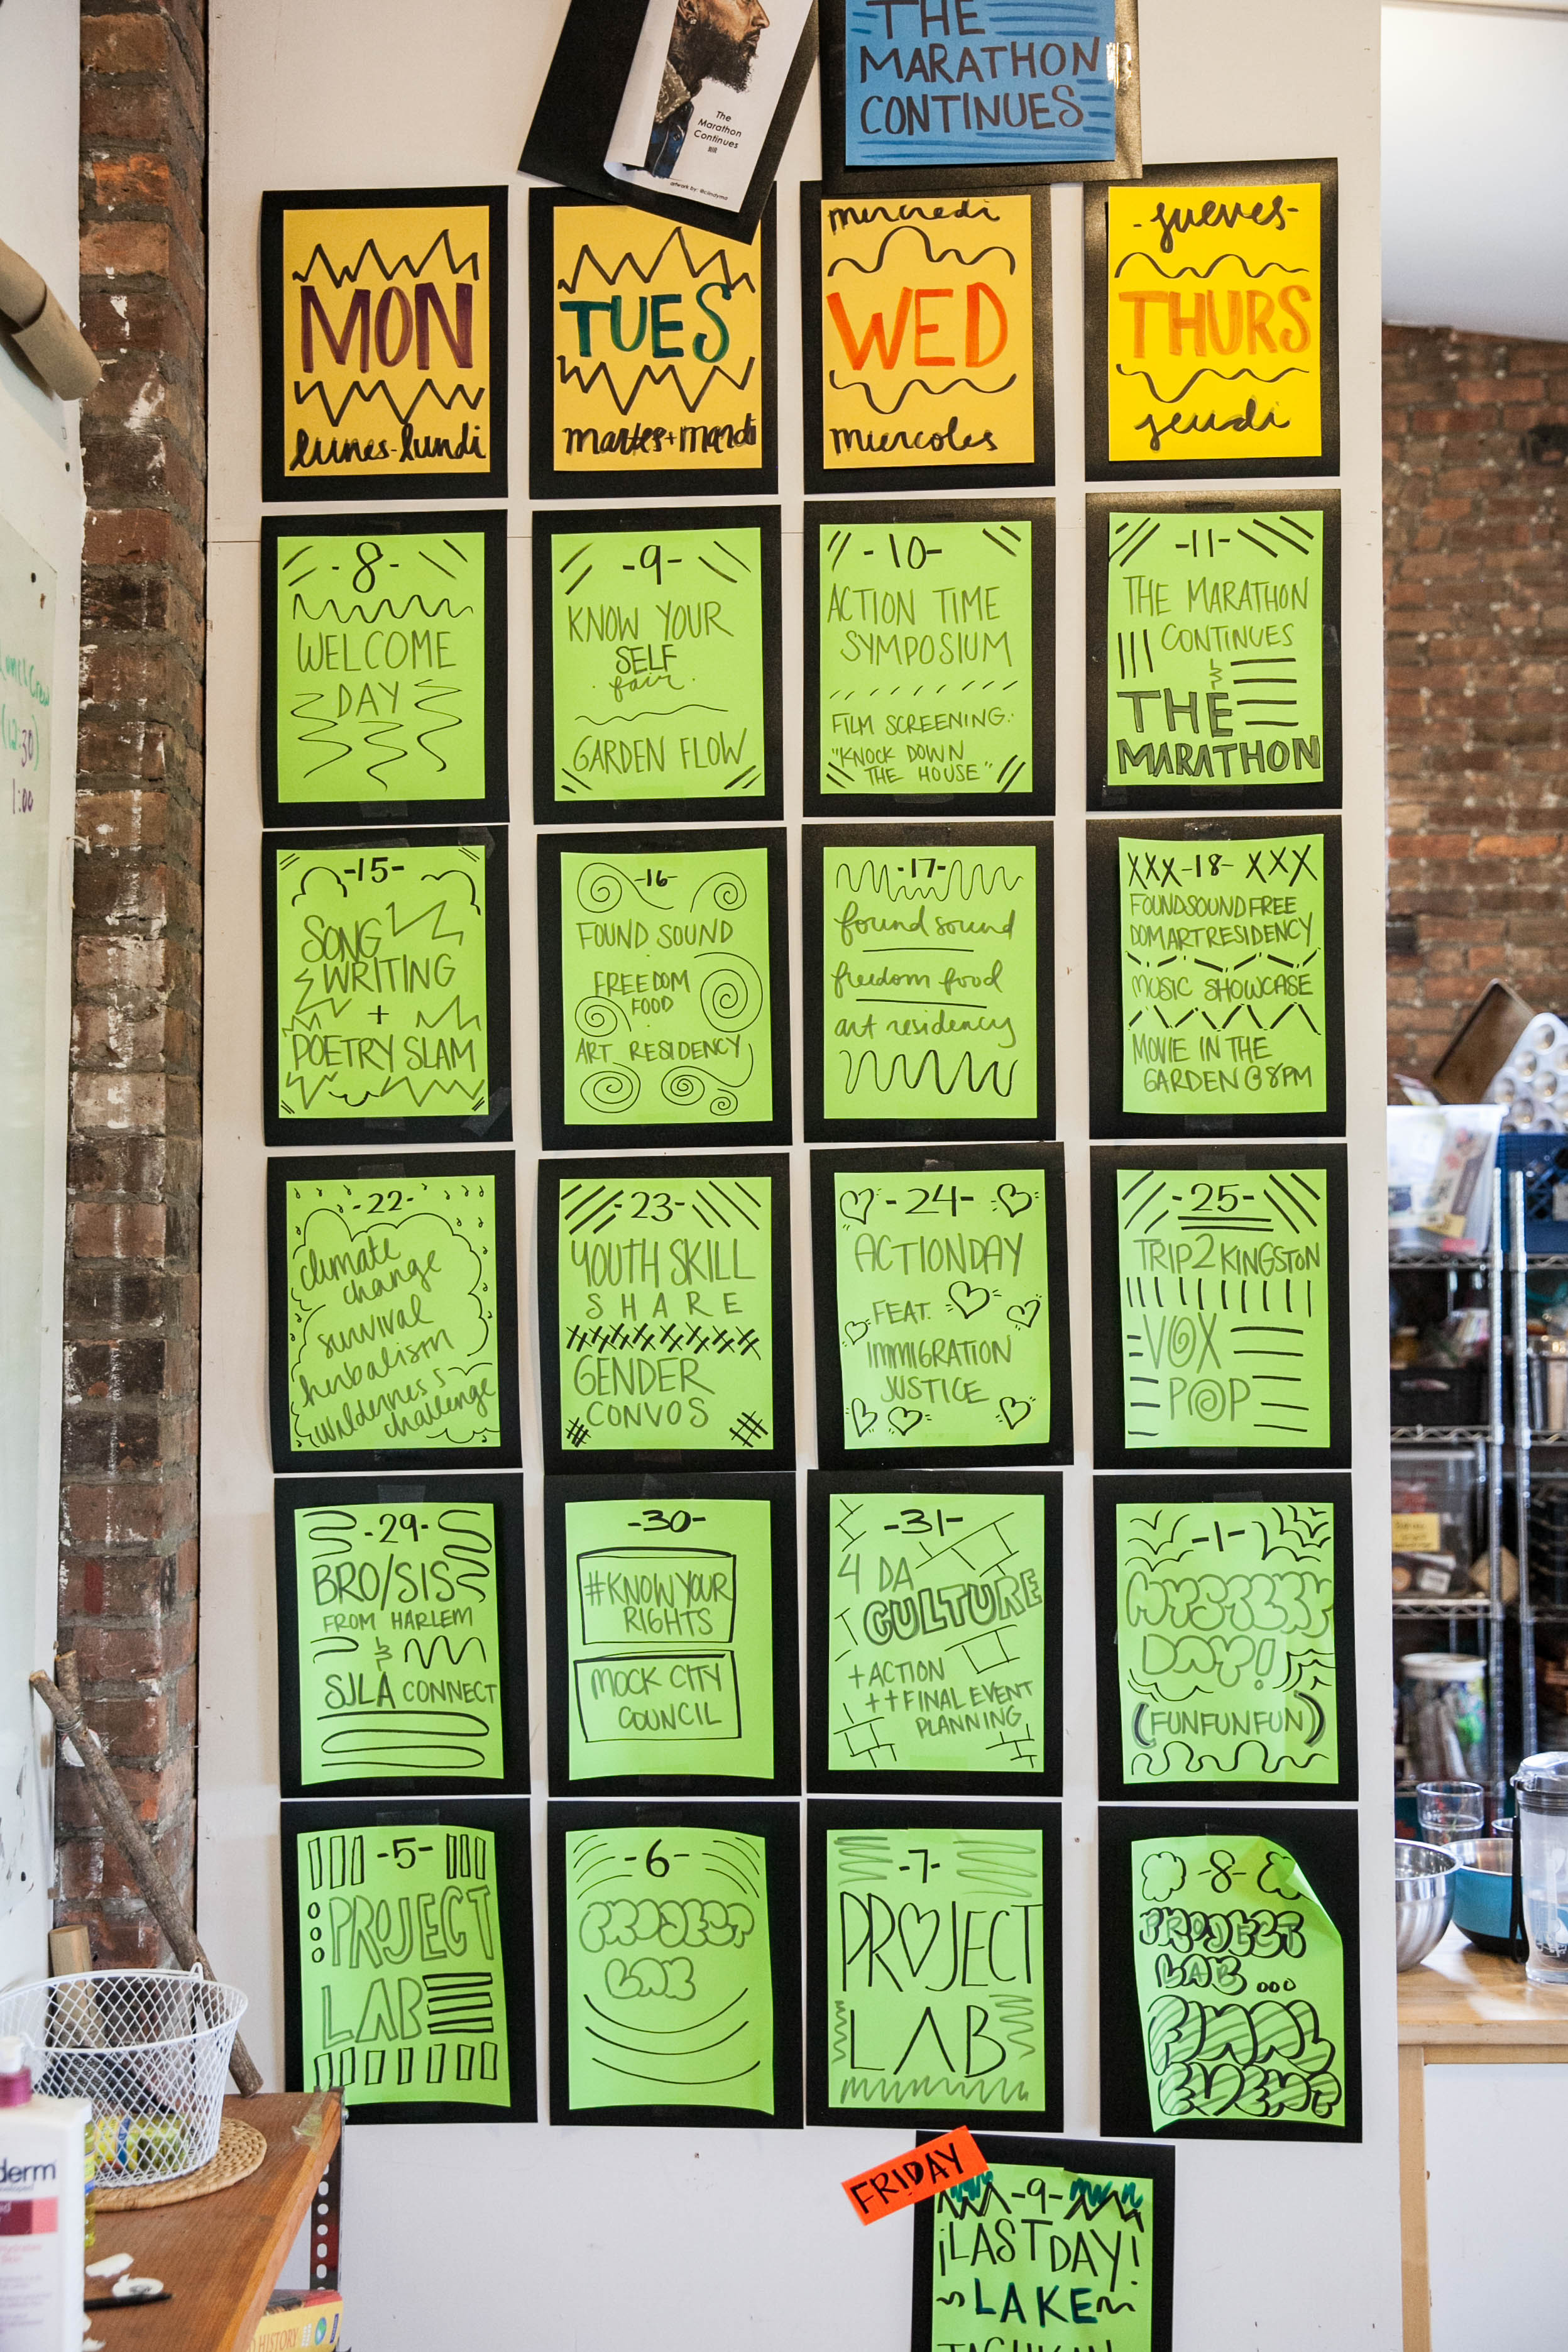 THE
MARATHON
CONTINUES
The
Marathon
Continues
artwork by: @candyma
MON
lunes-lundi
TUES
martes+mardi
mercredi
WED
miercoles
-jueves-
THURS
jeudi
-8-
WELCOME
DAY
-9-
KNOW YOUR
SELF
fair
GARDEN FLOW
-10-
ACTION TIME
SYMPOSIUM
FILM SCREENING:
"KNOCK DOWN
THE HOUSE"
-11-
THE MARATHON
CONTINUES
THE
MARATHON
-15-
SONG
WRITING
+
POETRY SLAM
-16-
FOUND SOUND
FREEDOM
FOOD
ART RESIDENCY
-17-
found sound
freedom food
art residency
XXX-18-XXX
FOUNDSOUNDFREE
DOMARTRESIDENCY
MUSIC SHOWCASE
MOVIE IN THE
GARDEN @ 8PM
-22-
climate
change
survival
herbalism
wilderness
challenge
-23-
YOUTH SKILL
SHARE
GENDER
CONVOS
-24-
ACTIONDAY
FEAT.
IMMIGRATION
JUSTICE
-25-
TRIP2KINGSTON
VOX
POP
-29-
BRO/SIS
FROM HARLEM
&
SJLA CONNECT
-30-
#KNOW YOUR
RIGHTS
MOCK CITY
COUNCIL
-31-
4 DA
CULTURE
+ACTION
++FINAL EVENT
PLANNING
-1-
MYSTERY
DAY!
(FUNFUNFUN)
-5-
PROJECT
LAB
-6-
PROJECT
LAB
-7-
PROJECT
LAB
-8-
PROJECT
LAB...
FINAL
EVENT
FRIDAY
-9-
¡LAST DAY!
~LAKE~
(12:30)
1:00
derm
HISTORY